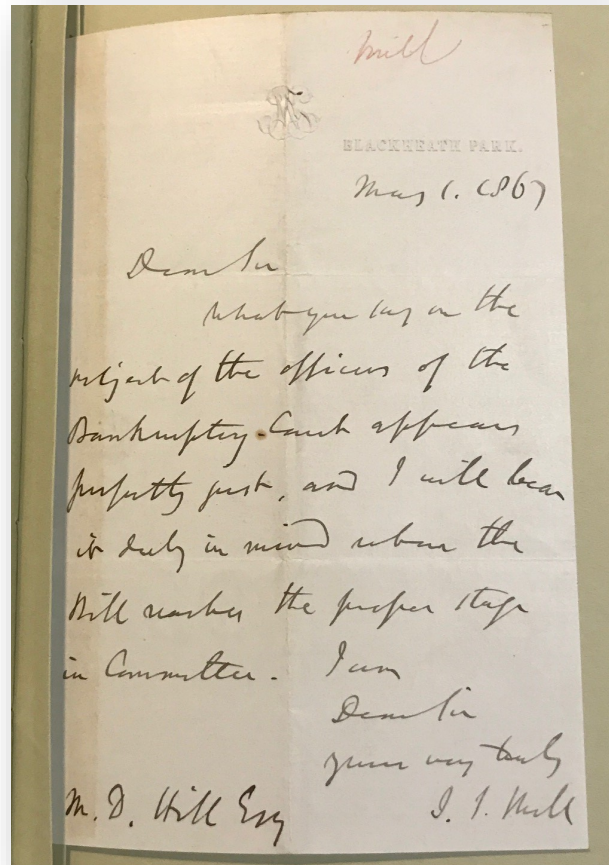 Mill
BLACKHEATH PARK.
May 1. 1867
Dear Sir
What you say on the
subject of the officers of the
Bankruptcy Court appears
perfectly just, and I will bear
it duly in mind when the
Bill reaches the proper stage
in Committee. I am
Dear Sir
yours very truly
J. S. Mill
M. D. Hill Esq